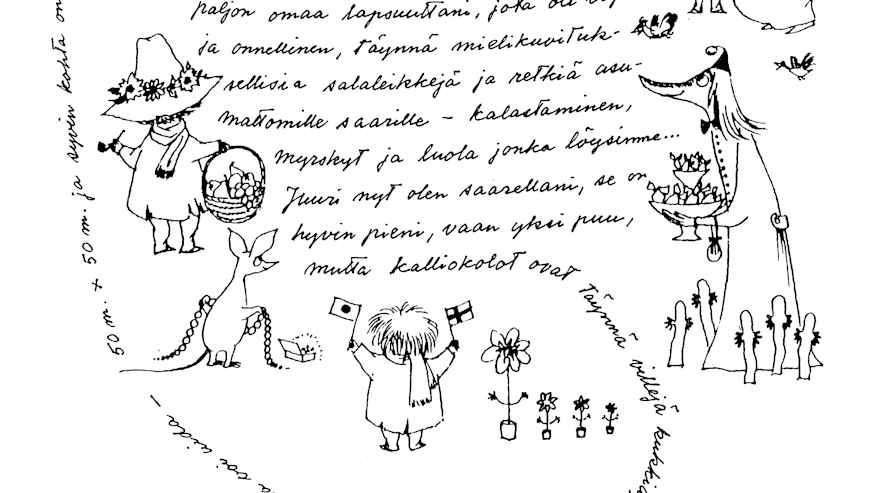 paljon omaa lapsuuttani, joka oli
ja onnellinen, täynnä mielikuvituk-
sellisia salaleikkejä ja retkiä asu-
mattomille saarille – kalastaminen,
myrskyt ja luola jonka löysimme...
Juuri nyt olen saarellani, se on
hyvin pieni, vaan yksi puu,
mutta kalliokolot ovat täynnä villejä kukkia
voi uida –
50 m. x 50 m. ja syvin kohta on